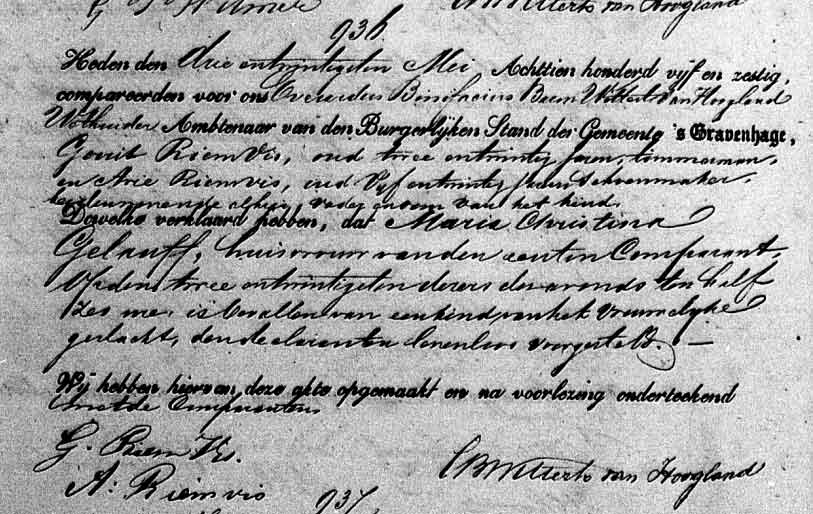 936.
Heden den drie entwintigsten Mei Achttien honderd vijf en zestig,
compareerden voor ons Everardus Bonifacius Beem Wittert van Hoogland
Wethouder Ambtenaar van den Burgerlijken Stand der Gemeente 's Gravenhage,
Gerrit Riem Vis, oud twee entwintig jaren, timmerman,
en Arie Riem vis, oud Vijf entwintig jaren Schoenmaker,
beiden wonende alhier, vader en oom van het kind.
Dewelke verklaard hebben, dat Maria Christina
Gelauff, huisvrouw van den eersten Comparant,
Op den twee entwintigsten dezer des avonds ten half
zes ure, is bevallen van een kind van het vrouwelijke
geslacht, den declaranten levenloos voorgesteld. —
Wij hebben hiervan deze akte opgemaakt en na voorlezing onderteekend
met de Comparanten.
G. Riem Vis.
EBWittert van Hoogland
A: Riem vis
937.